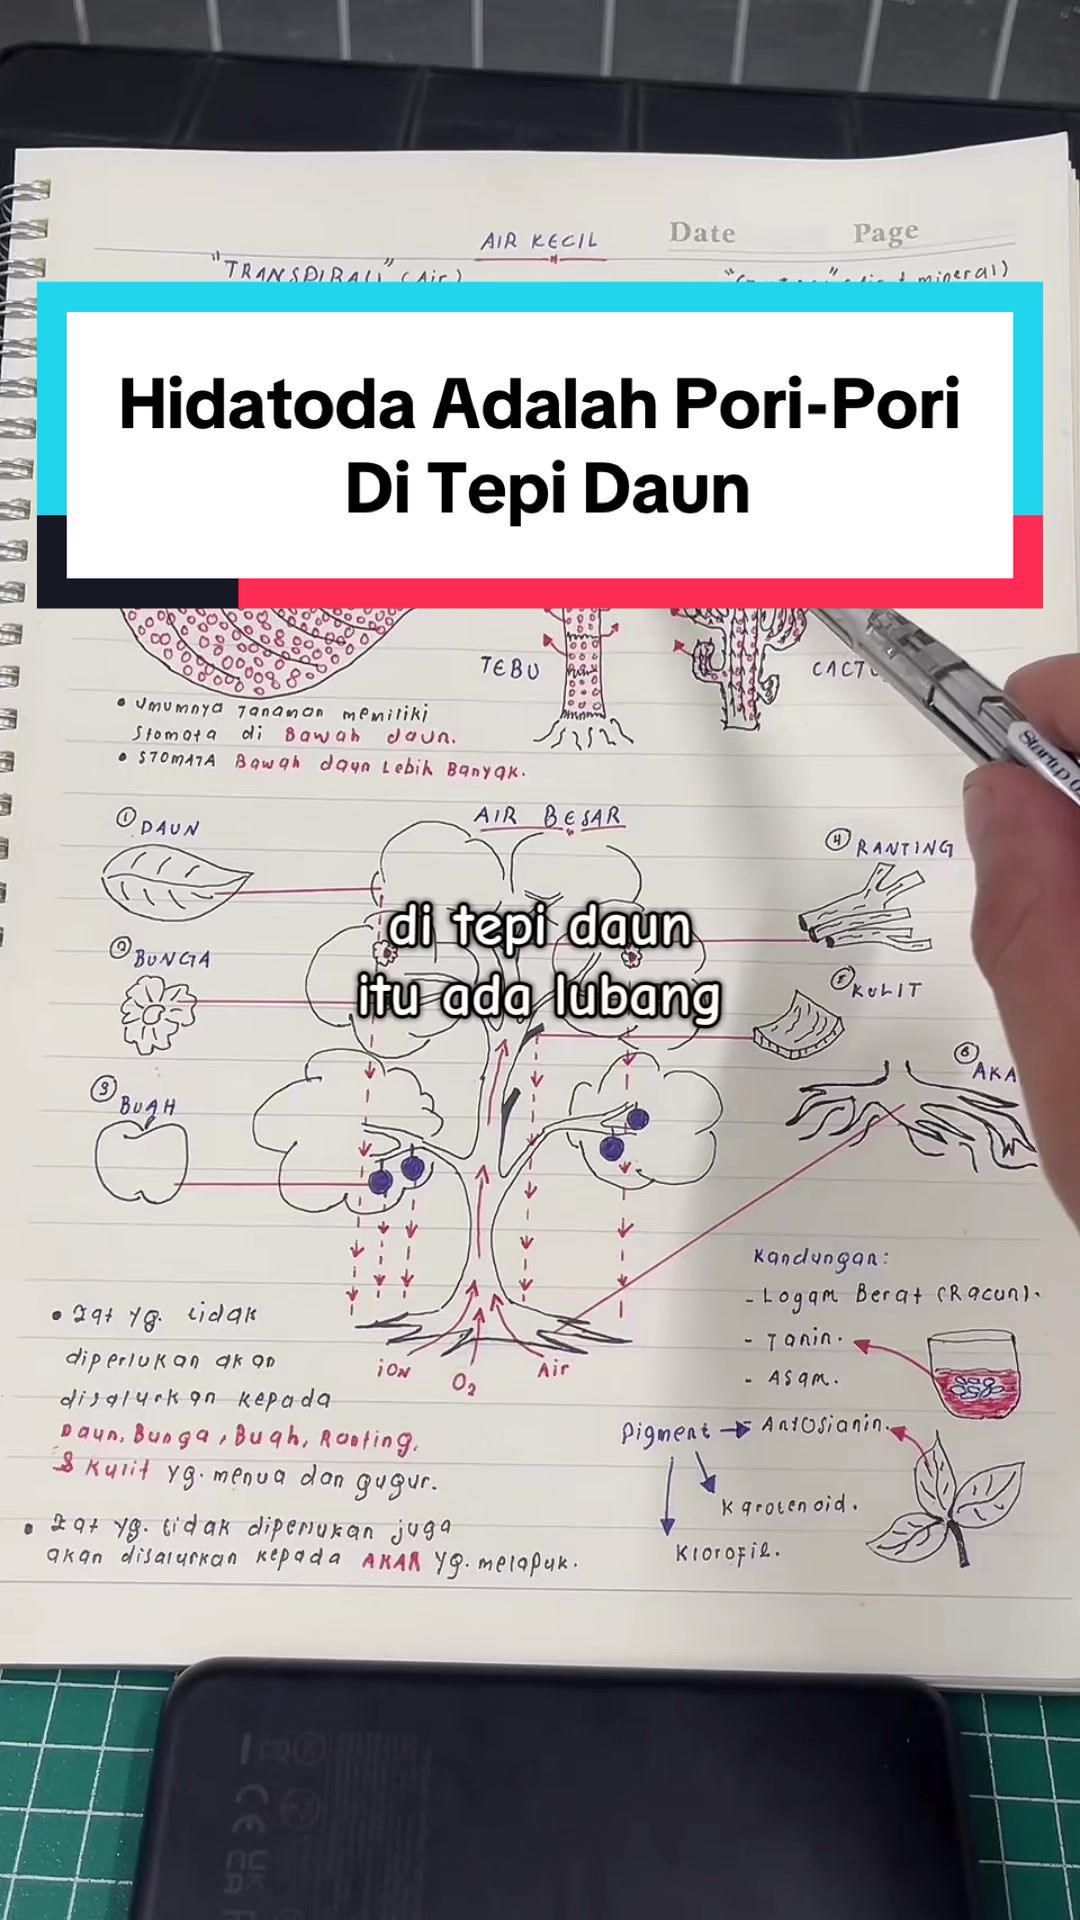 Date Page
AIR KECIL
"TRANSPIRASI" (Air)
mineral)
Hidatoda Adalah Pori-Pori
Di Tepi Daun
TEBU
• Umumnya Tanaman memiliki
Stomata di Bawah daun.
• STOMATA Bawah daun Lebih Banyak.
Startup
AIR BESAR
① DAUN
④ RANTING
di tepi daun
itu ada lubang
② BUNGA
⑤ KULIT
③ BUAH
⑥ AKA
Kandungan:
- Logam Berat (Racun).
- Tanin.
- Asam.
• Zat yg. tidak
diperlukan akan
disalurkan kepada
Daun, Bunga, Buah, Ranting,
& Kulit yg. menua dan gugur.
ion O2 Air
Pigment → Antosianin.
Karotenoid.
Klorofil.
• Zat yg. tidak diperlukan juga
akan disalurkan kepada AKAR yg. melapuk.
CE
UK
CA